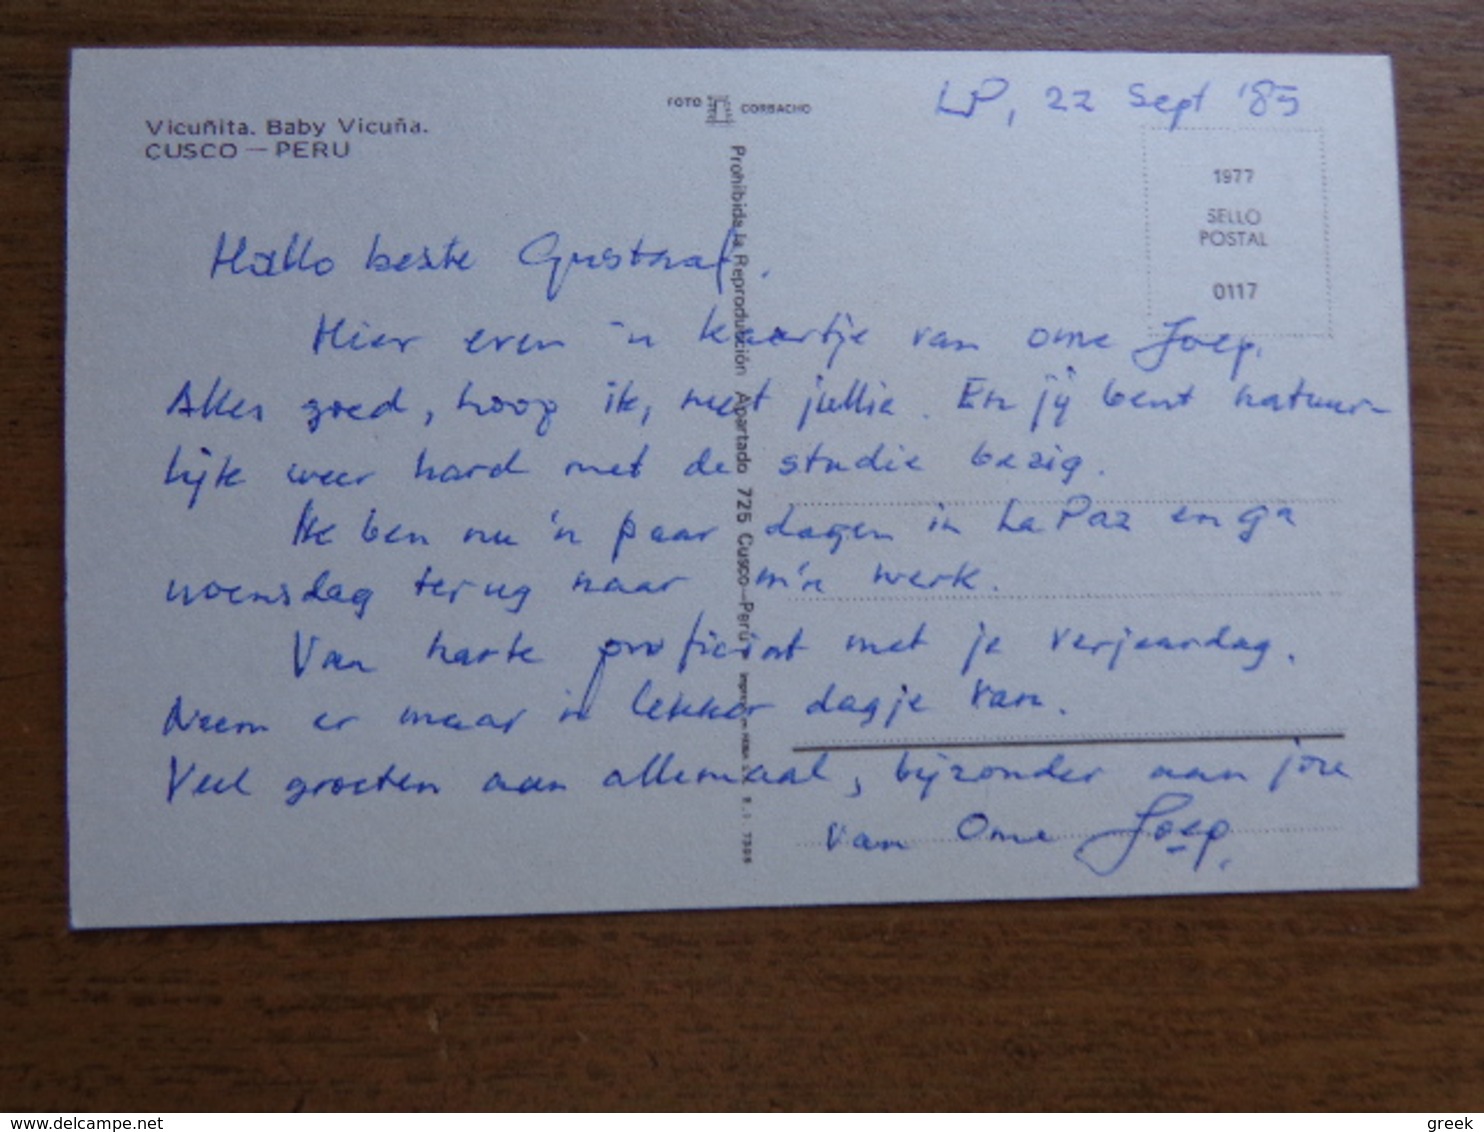 LP, 22 Sept '85
FOTO CORBACHO
Vicuñita. Baby Vicuña.
CUSCO — PERU
1977
SELLO
POSTAL
0117
Prohibida la Reproducción Apartado 725 Cusco—Perú
Hallo beste Gustaaf,
Hier even 'n kaartje van ome Joep.
Alles goed, hoop ik, met jullie. En jij bent natuur-
lijk weer hard met de studie bezig.
Ik ben nu 'n paar dagen in La Paz en ga
woensdag terug naar m'n werk.
Van harte proficiat met je verjaardag.
Neem er maar 'n lekker dagje van.
Veel groeten aan allemaal, bijzonder aan jou
van Ome Joep.
www.delcampe.net
greek